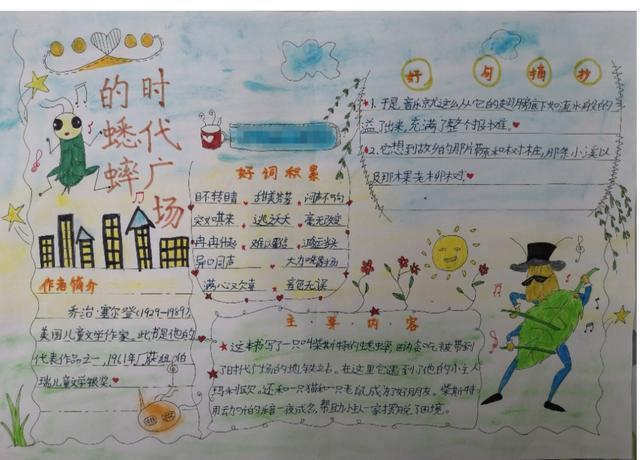 时代广场
的蟋蟀
好词积累
目不转睛 甜美芬芳
突如其来 逃之夭夭 毫无改变
冉冉升起 难以置信
异口同声
满心欢喜 首色无误
好句摘抄
1. 于是音乐就这么从它的翅膀底下如流水般的
溢了出来,充满了整个报摊。
2. 它想到故乡的那片草原和树桩,那条小溪以
及那棵老柳树
作者简介
乔治·塞尔登(1929-1989)
美国儿童文学作家。此书是他的
代表作品之一,1961年,获纽伯
瑞儿童文学银奖。
主要内容
这本书写了一只叫柴斯特的蟋蟀,因为贪吃被带到
了时代广场的地铁站。在这里它遇到了他的小主人
玛利欧。还和一只猫和一只老鼠成为了好朋友。柴斯特
用动听的乐音一夜成名,帮助小主人一家摆脱了困境。